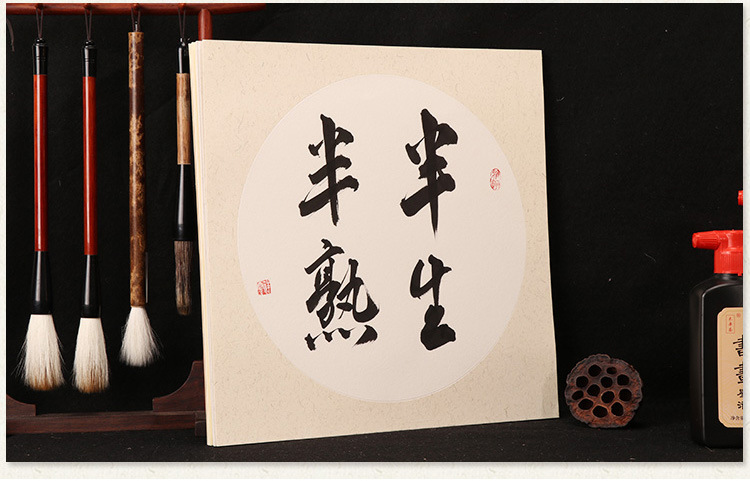 半生
半熟